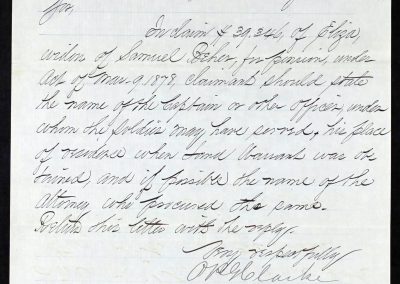 Sir,
In claim # 29,346, of Eliza,
widow of Samuel Asher, for pension, under
Act of Mar. 9, 1878, claimant should state
the name of the Captain or other Officer, under
whom the soldier may have served, his place
of residence when Land Warrant was ob
tained, and if possible the name of the
Attorney who procured the same.
Return this letter with the reply.
Very respectfully
Clarke